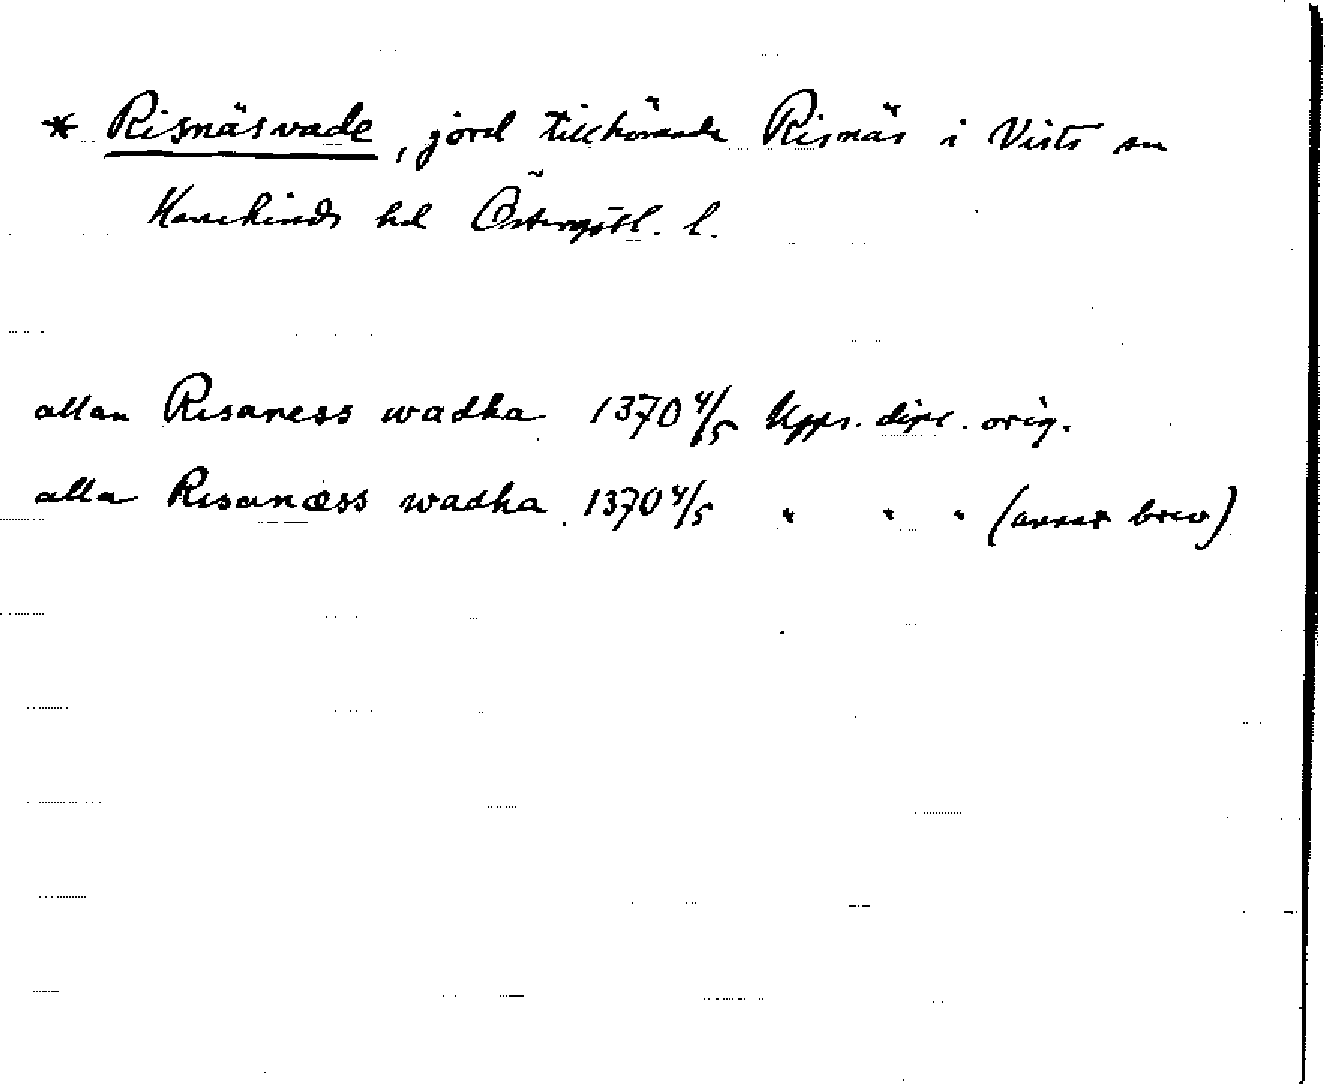 * Risnäsvade, jord tillhörande Risnäs i Vists sn
Hanekinds hd Östergötl. l.
allan Risaness wadha 1370 4/5 Upps. dipl. orig.
alla Risanæss wadha 1370 4/5 " " " (annat brev)